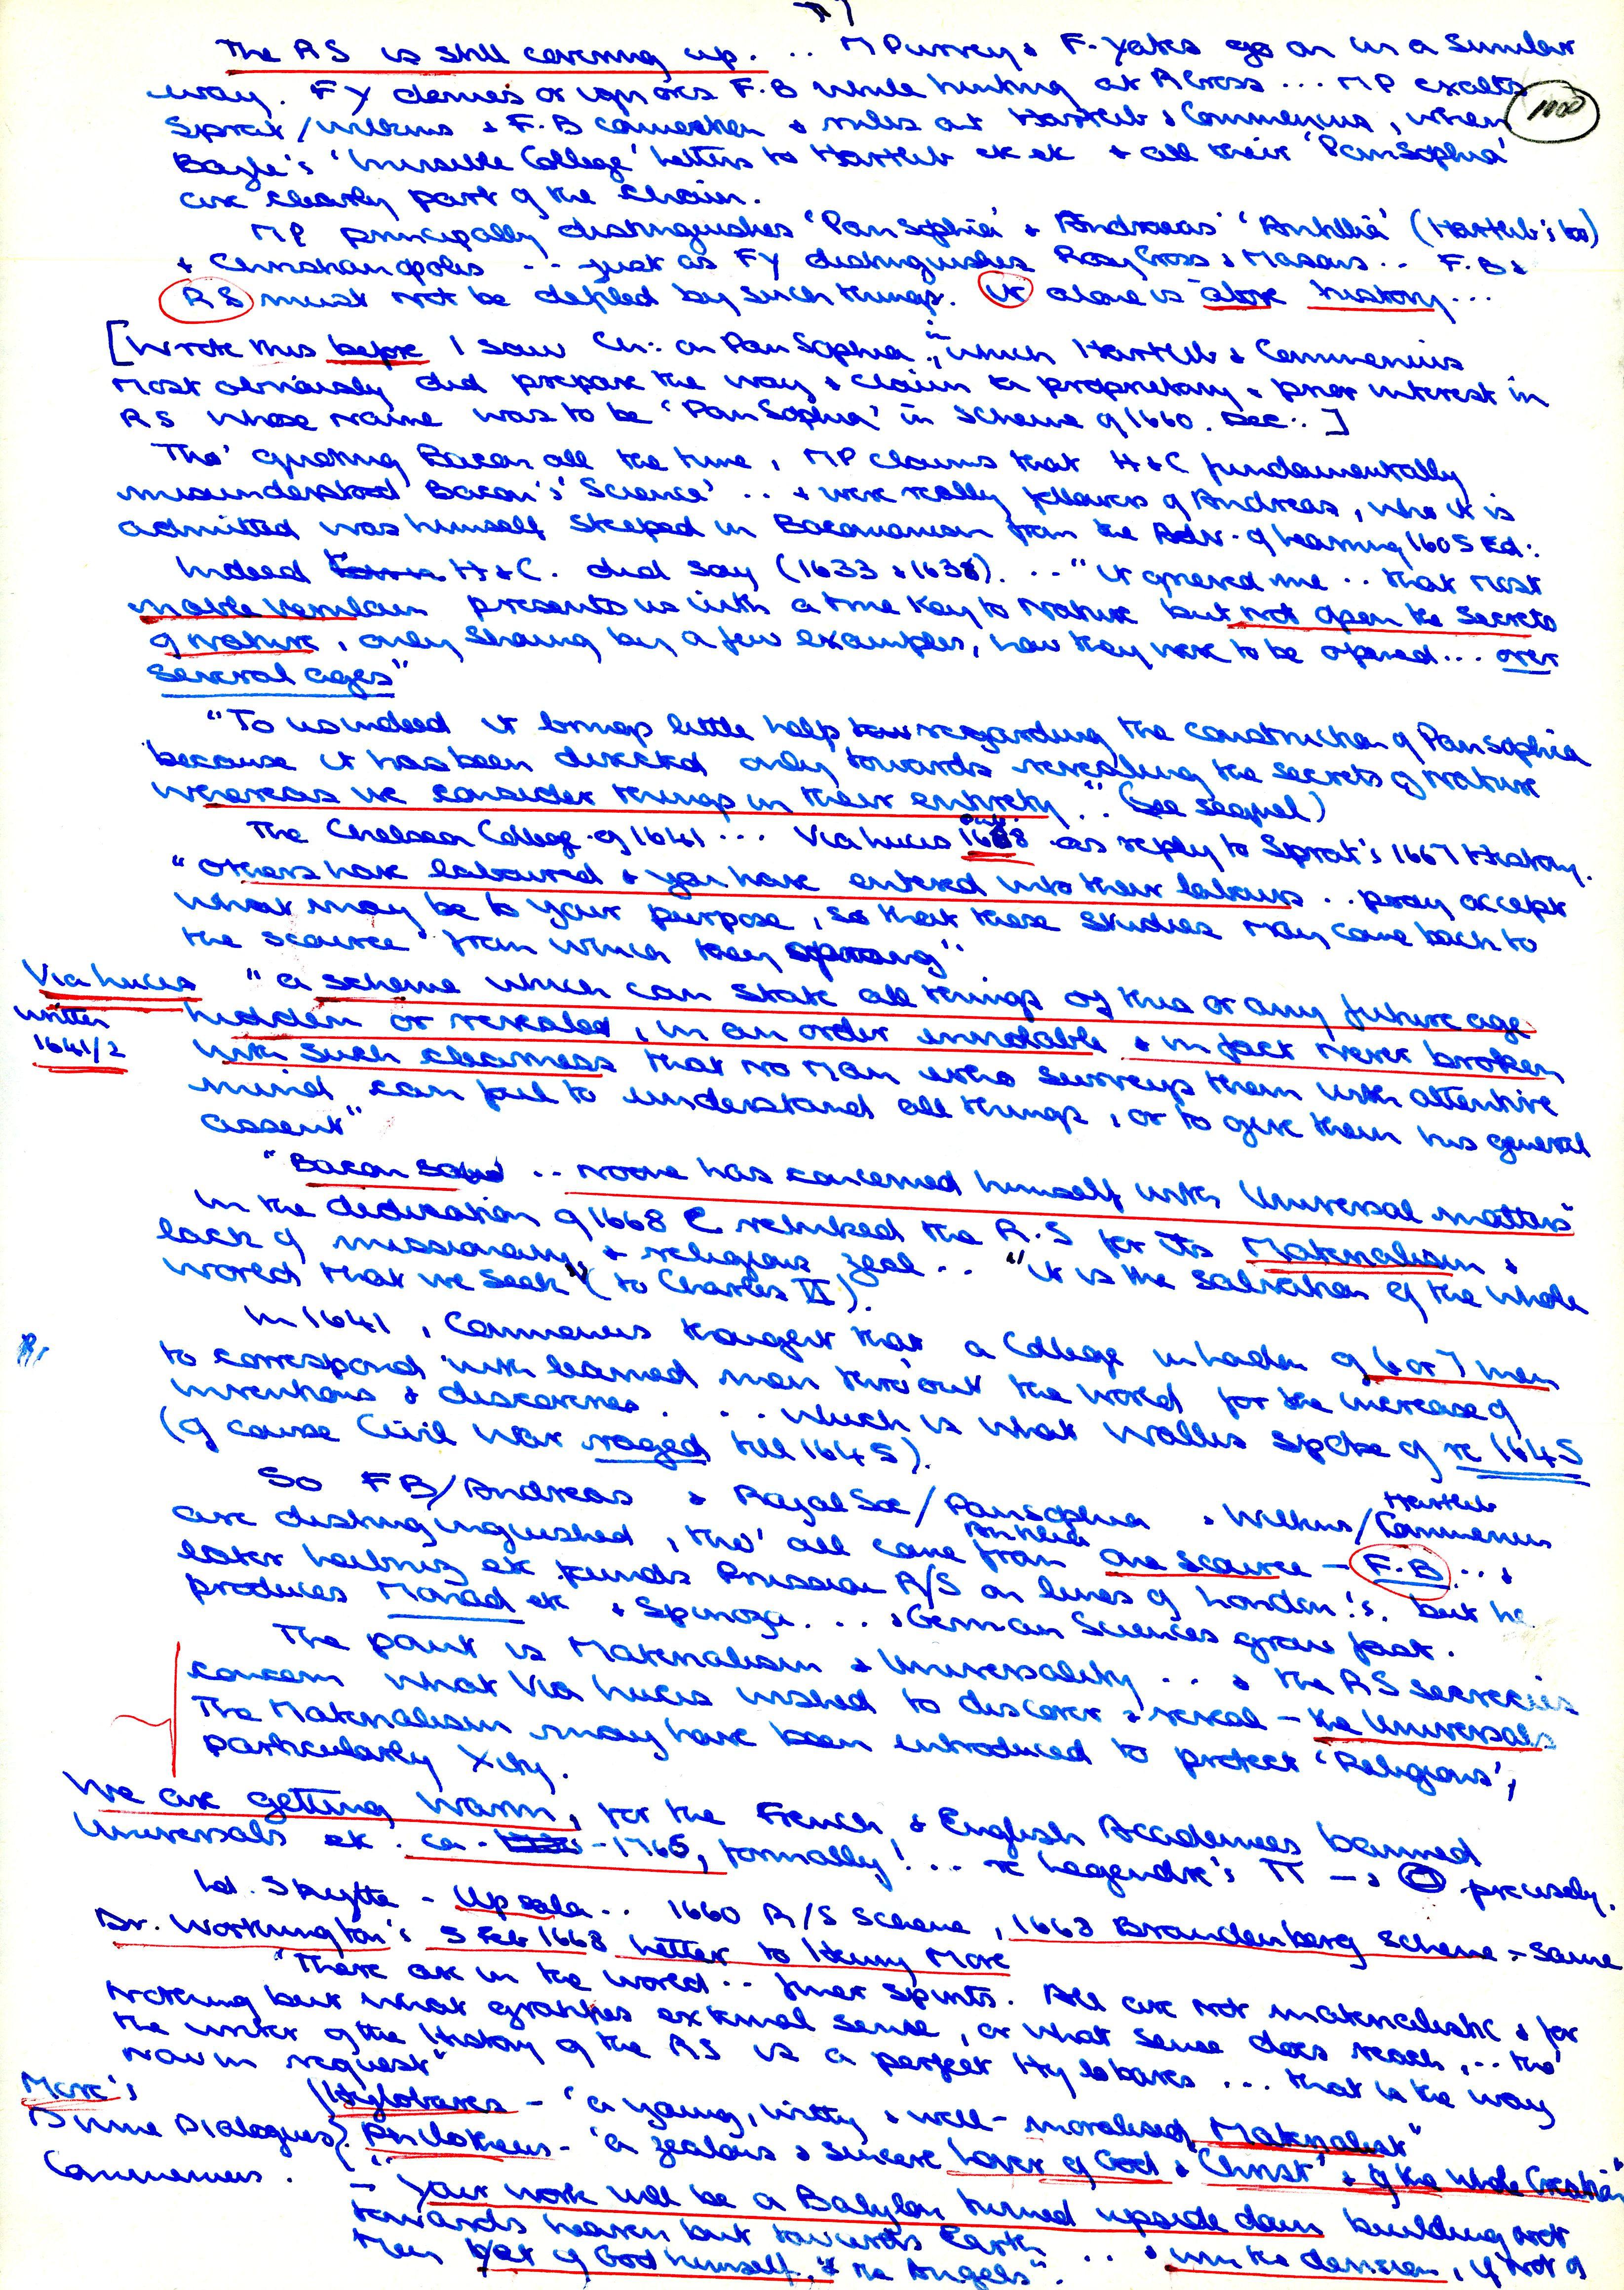 The RS is still covering up. .. M Purvey & F. Yates go on in a similar
way. FY denies or ignores F.B while hinting at RCross ... MP exalts
Sprat / Wilkins & F.B connection & rules out Hartlib & Commenius, when
Boyle's 'Invisible College' letters to Hartlib etc etc & all their 'PanSophia'
are clearly part of the chain.
MP principally distinguishes 'PanSophia' & Andraeas' 'Antillia' (Hartlib's too)
& Christianopolis .. just as FY distinguishes RosyCross & Masons .. F.B &
RS must not be defiled by such things. It alone is above history ...
[Wrote this before I saw Ch: on PanSophia, in which Hartlib & Commenius
most obviously did prepare the way & claim a proprietary & prior interest in
RS whose name was to be 'PanSophia' in Scheme of 1660. Dec:. ]
Tho' quoting Bacon all the time, MP claims that H&C fundamentally
misunderstood Bacon's 'Science' .. & were really followers of Andreas, who it is
admitted was himself steeped in Baconianism from the Adv. of Learning 1605 Ed:.
Indeed H&C. did say (1633 & 1638). .. "it grieved me .. that most
noble Verulam presents us with a true Key to Nature but not open the Secrets
of Nature, only showing by a few examples, how they were to be opened ... over
several ages"
"To us indeed it brings little help regarding the construction of PanSophia
because it has been directed only towards revealing the secrets of Nature
whereas we consider things in their entirety" .. (See sequel)
The Chelsea College of 1641 ... Via Lucis pub. 1668 as reply to Sprat's 1667 History.
"Others have laboured & you have entered into their labours .. pray accept
what may be to your purpose, so that these studies may come back to
the source from which they sprang".
Via Lucis "a scheme which can state all things of this or any future age
written hidden or revealed, in an order inviolable & in fact never broken
1641/2 with such clearness that no man who surveys them with attentive
mind can fail to understand all things, or to give them his general
assent"
"Bacon said .. no one has concerned himself with Universal matters"
In the dedication of 1668 C rebuked the R.S for its Materialism &
lack of missionary & religious zeal .. "it is the salvation of the whole
world that we seek" (to Charles II).
In 1641, Commenius thought that a College in London of 6 or 7 men
to correspond with learned men thro'out the world for the increase of
inventions & discoveries. ... which is what Wallis spoke of re 1645
(of course Civil War raged till 1645).
So FB/Andreas & Royal Soc/Pansophia & Wilkins/Hartlib Commenius
are distinguinguished, tho' all came from Antilia one source – F.B ... &
later Leibniz etc funds Prussian R/S on lines of London's. but he
produces Monad etc & Spinoza ... & German Sciences grow fast.
The point is Materialism & Universality ... & the RS secrecies
concern what Via Lucis wished to discover & reveal – the Universals
The Materialism may have been introduced to protect 'Religions',
particularly Xity.
We are getting warm, for the French & English Academies banned
Universals etc. ca - -1765, formally! ... re Legendre's π → precisely.
Ld. Skytte – Upsala .. 1660 R/S scheme, 1668 Brandenberg Scheme – same
Dr. Worthington's 5 Feb 1668 Letter to Henry More
'There are in the world .. finer spirits. All are not materialistic & for
nothing but what gratifies external sense, or what sense does reach, .. tho'
the writer of the History of the RS is a perfect Hylobares ... that is the way
now in request"
More's Hylobares – 'a young, witty & well-moralised Materialist"
Divine Dialogues). Philotheus – 'a zealous & sincere Lover of God & Christ' & of the whole Creation"
Commenius. – "Your work will be a Babylon turned upside down building not
towards heaven but towards Earth .. & win the derision, if not of
men yet of God himself. & the Angels".